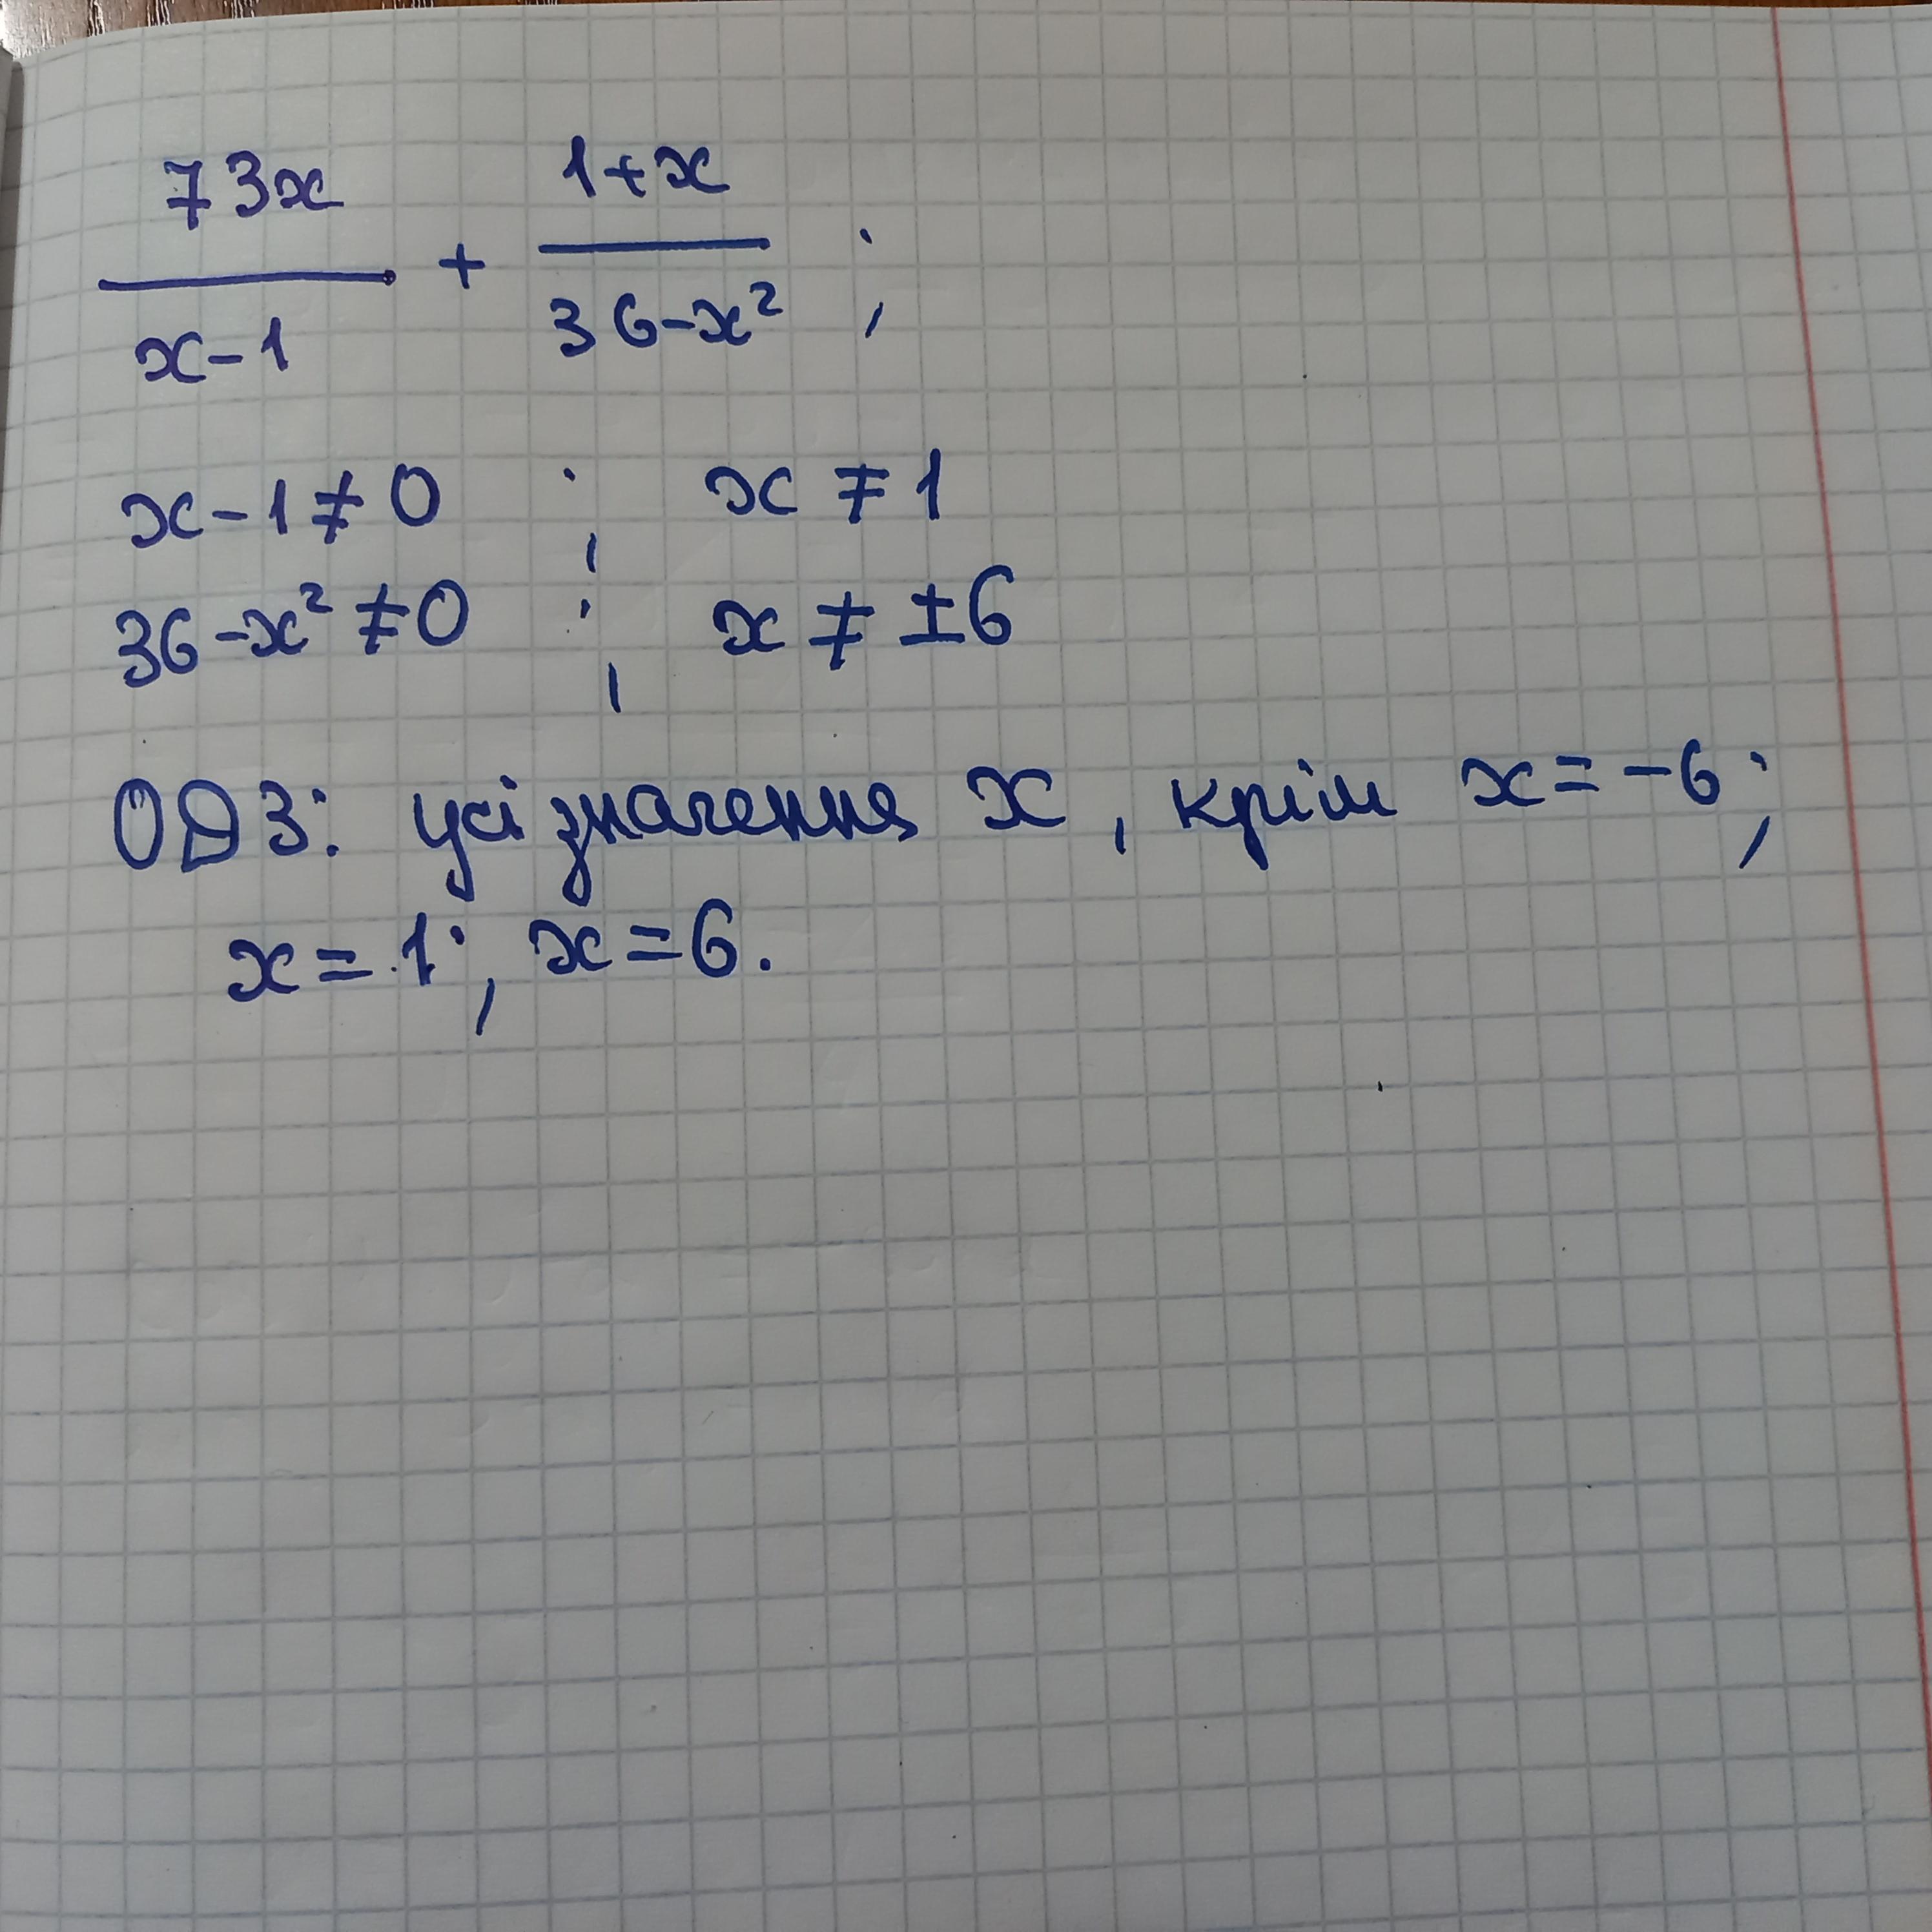 73x/x-1 + 1+x/36-x² ;
x-1≠0 ; x≠1
36-x²≠0 ; x≠±6
ОДЗ: усі значення x, крім x=-6;
x=1; x=6.